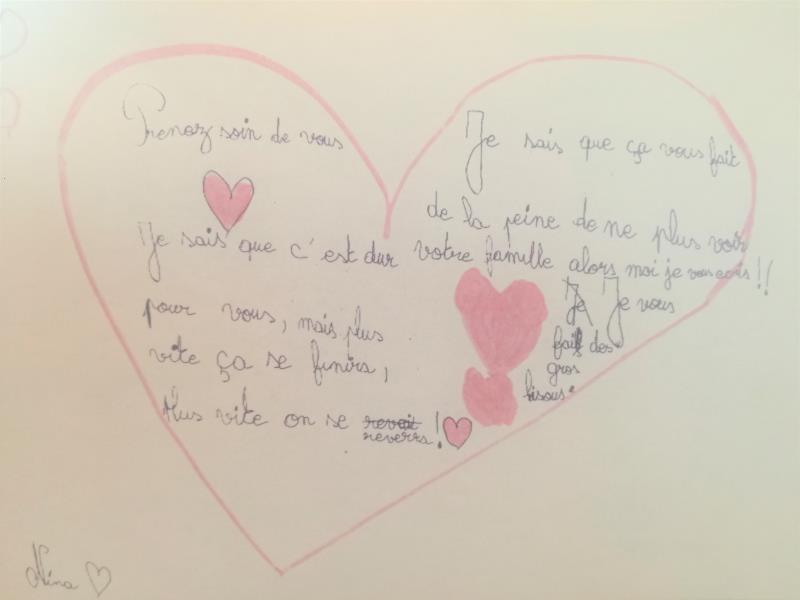 Prenez soin de vous
Je sais que c'est dur
pour vous, mais plus
vite ça se finira,
Plus vite on se revoit
reverra !
Je sais que ça vous fait
de la peine de ne plus voir
votre famille alors moi je vous ecris !!
Je Je vous
fais des
gros
bisous.
Nina